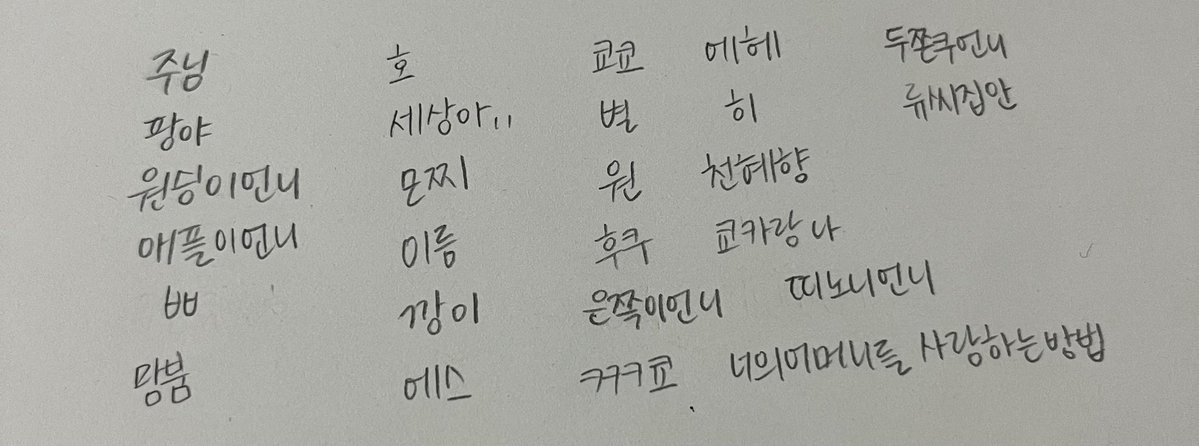 주님 호 쿄쿄 에헤 두쫀쿠언니
팡야 세상아,, 별 히 류씨집안
원딩이언니 모찌 원 천혜향
애플이언니 이름 후쿠 쿄카랑나
ㅃ 깡이 은쪽이언니 띠노니언니
망붐 에스 ㅋㅋㅋ쿄 너의어머니를 사랑하는방법